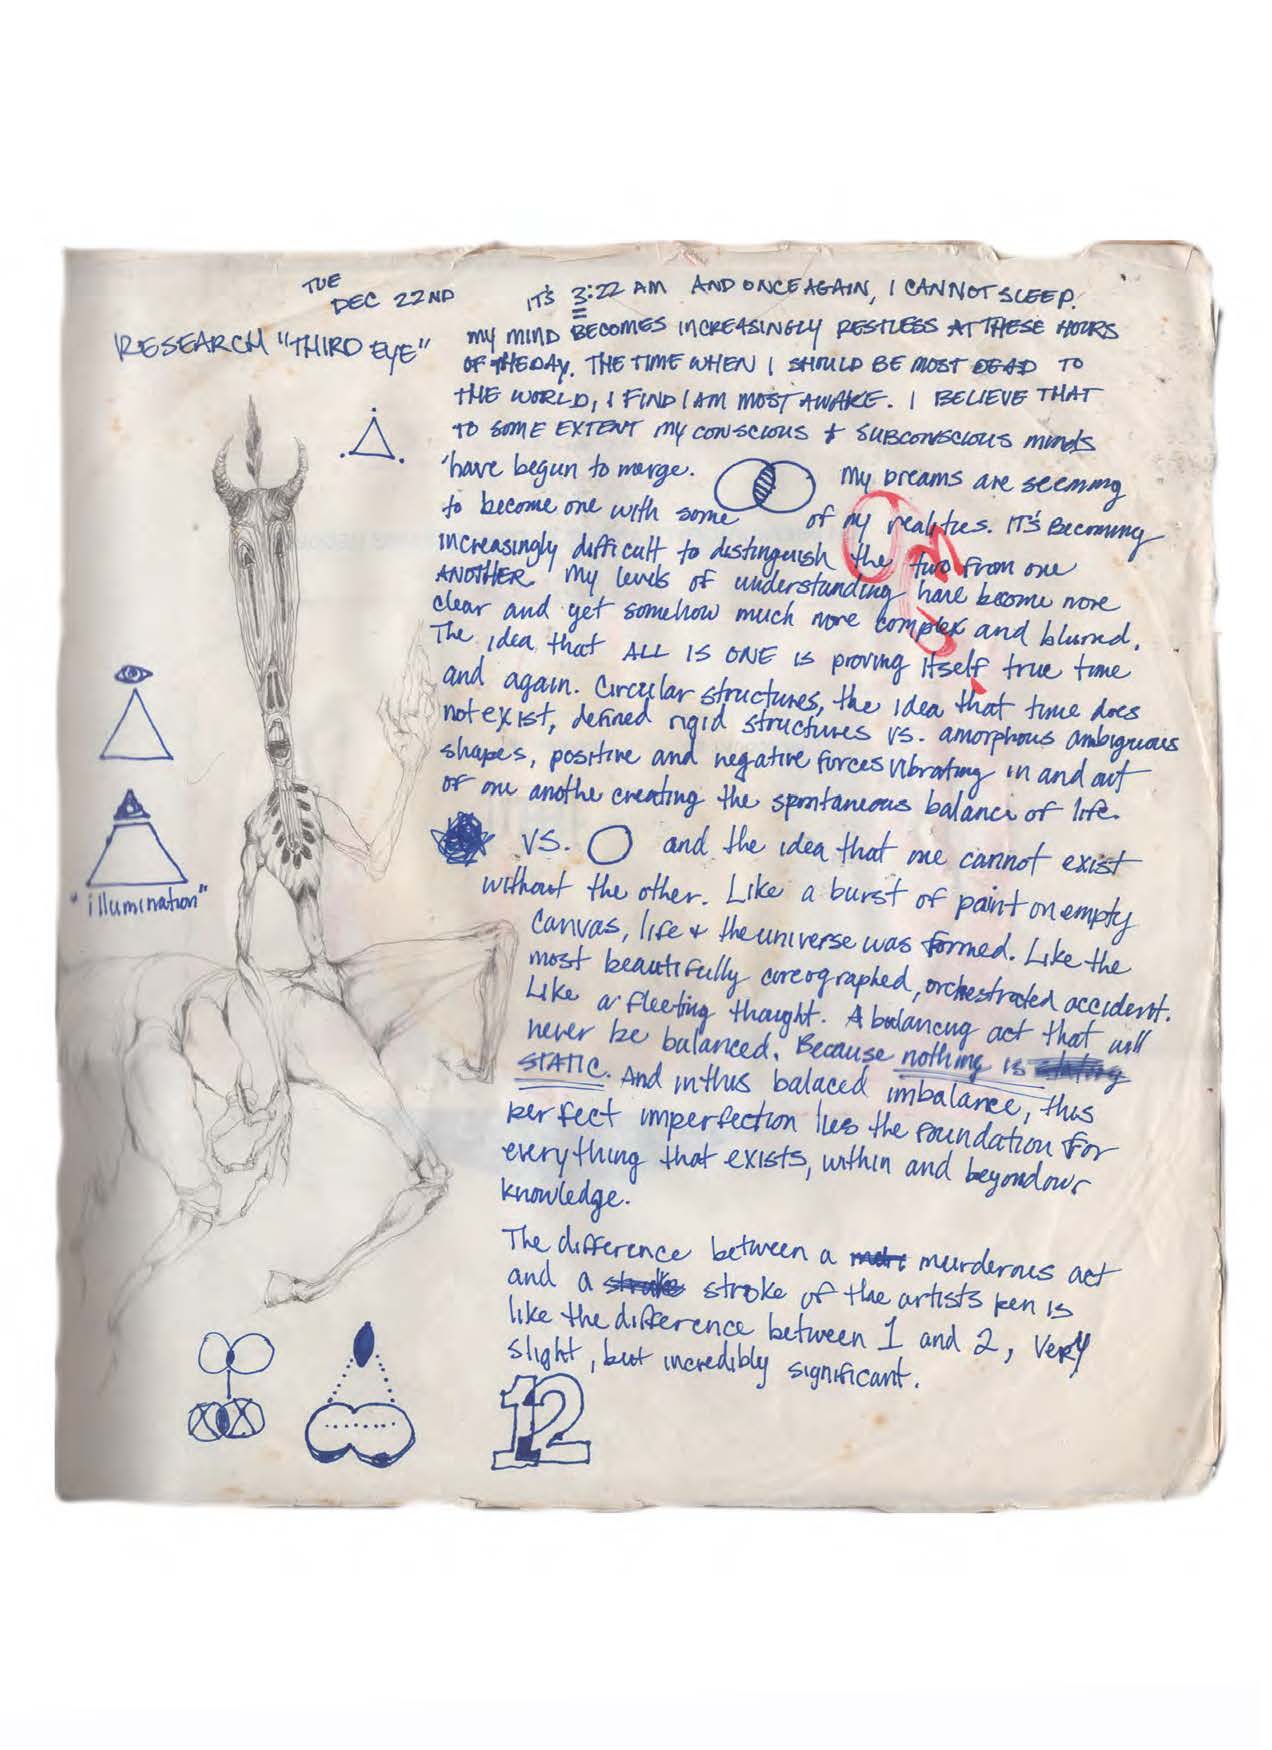 TUE
DEC 22ND
RESEARCH "THIRD EYE"
IT'S 3:22 AM AND ONCE AGAIN, I CANNOT SLEEP.
MY MIND BECOMES INCREASINGLY RESTLESS AT THESE HOURS
OF THE DAY. THE TIME WHEN I SHOULD BE MOST DEAD TO
THE WORLD, I FIND I AM MOST AWAKE. I BELIEVE THAT
TO SOME EXTENT MY CONSCIOUS + SUBCONSCIOUS minds
have begun to merge. My Dreams are seeming
to become one with some of my realities. IT'S Becoming
increasingly difficult to distinguish the two from one
ANOTHER. My levels of understanding have become more
clear and yet somehow much more complex and blurred.
The idea that ALL IS ONE is proving itself true time
and again. Circular structures, the idea that time does
not exist, defined rigid structures vs. amorphous ambiguous
shapes, positive and negative forces vibrating in and out
of one anothe creating the spontaneous balance of life.
VS. and the idea that one cannot exist
without the other. Like a burst of paint on empty
Canvas, life + the universe was formed. Like the
most beautifully coreographed, orchestrated accident.
Like a fleeting thought. A balancing act that will
never be balanced. Because nothing is
STATIC. And in this balaced imbalance, this
perfect imperfection lies the foundation for
everything that exists, within and beyond our
knowledge.
The difference between a murderous act
and a stroke of the artists pen is
like the difference between 1 and 2, very
slight, but incredibly significant.
12
"illumination"